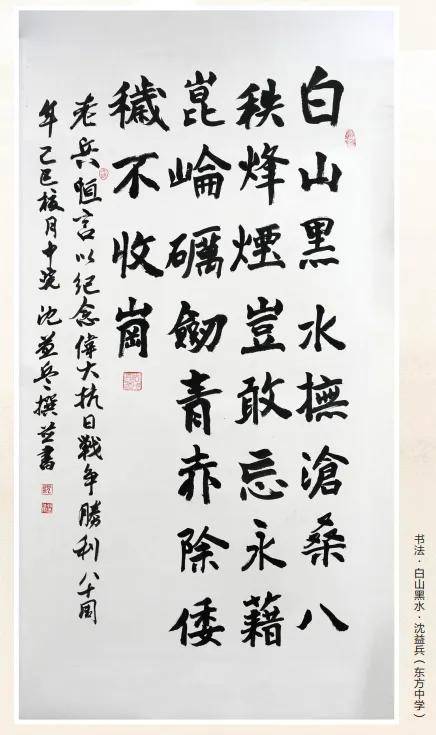 白山黑水撫滄桑八
秩烽煙豈敢忘永藉
崑崙礪劒青赤除倭
穢不收崗
老兵恒言以紀念偉大抗日戰争勝利八十周
年乙巳月浣沈益兵撰並書
书法·白山黑水·沈益兵（东方中学）